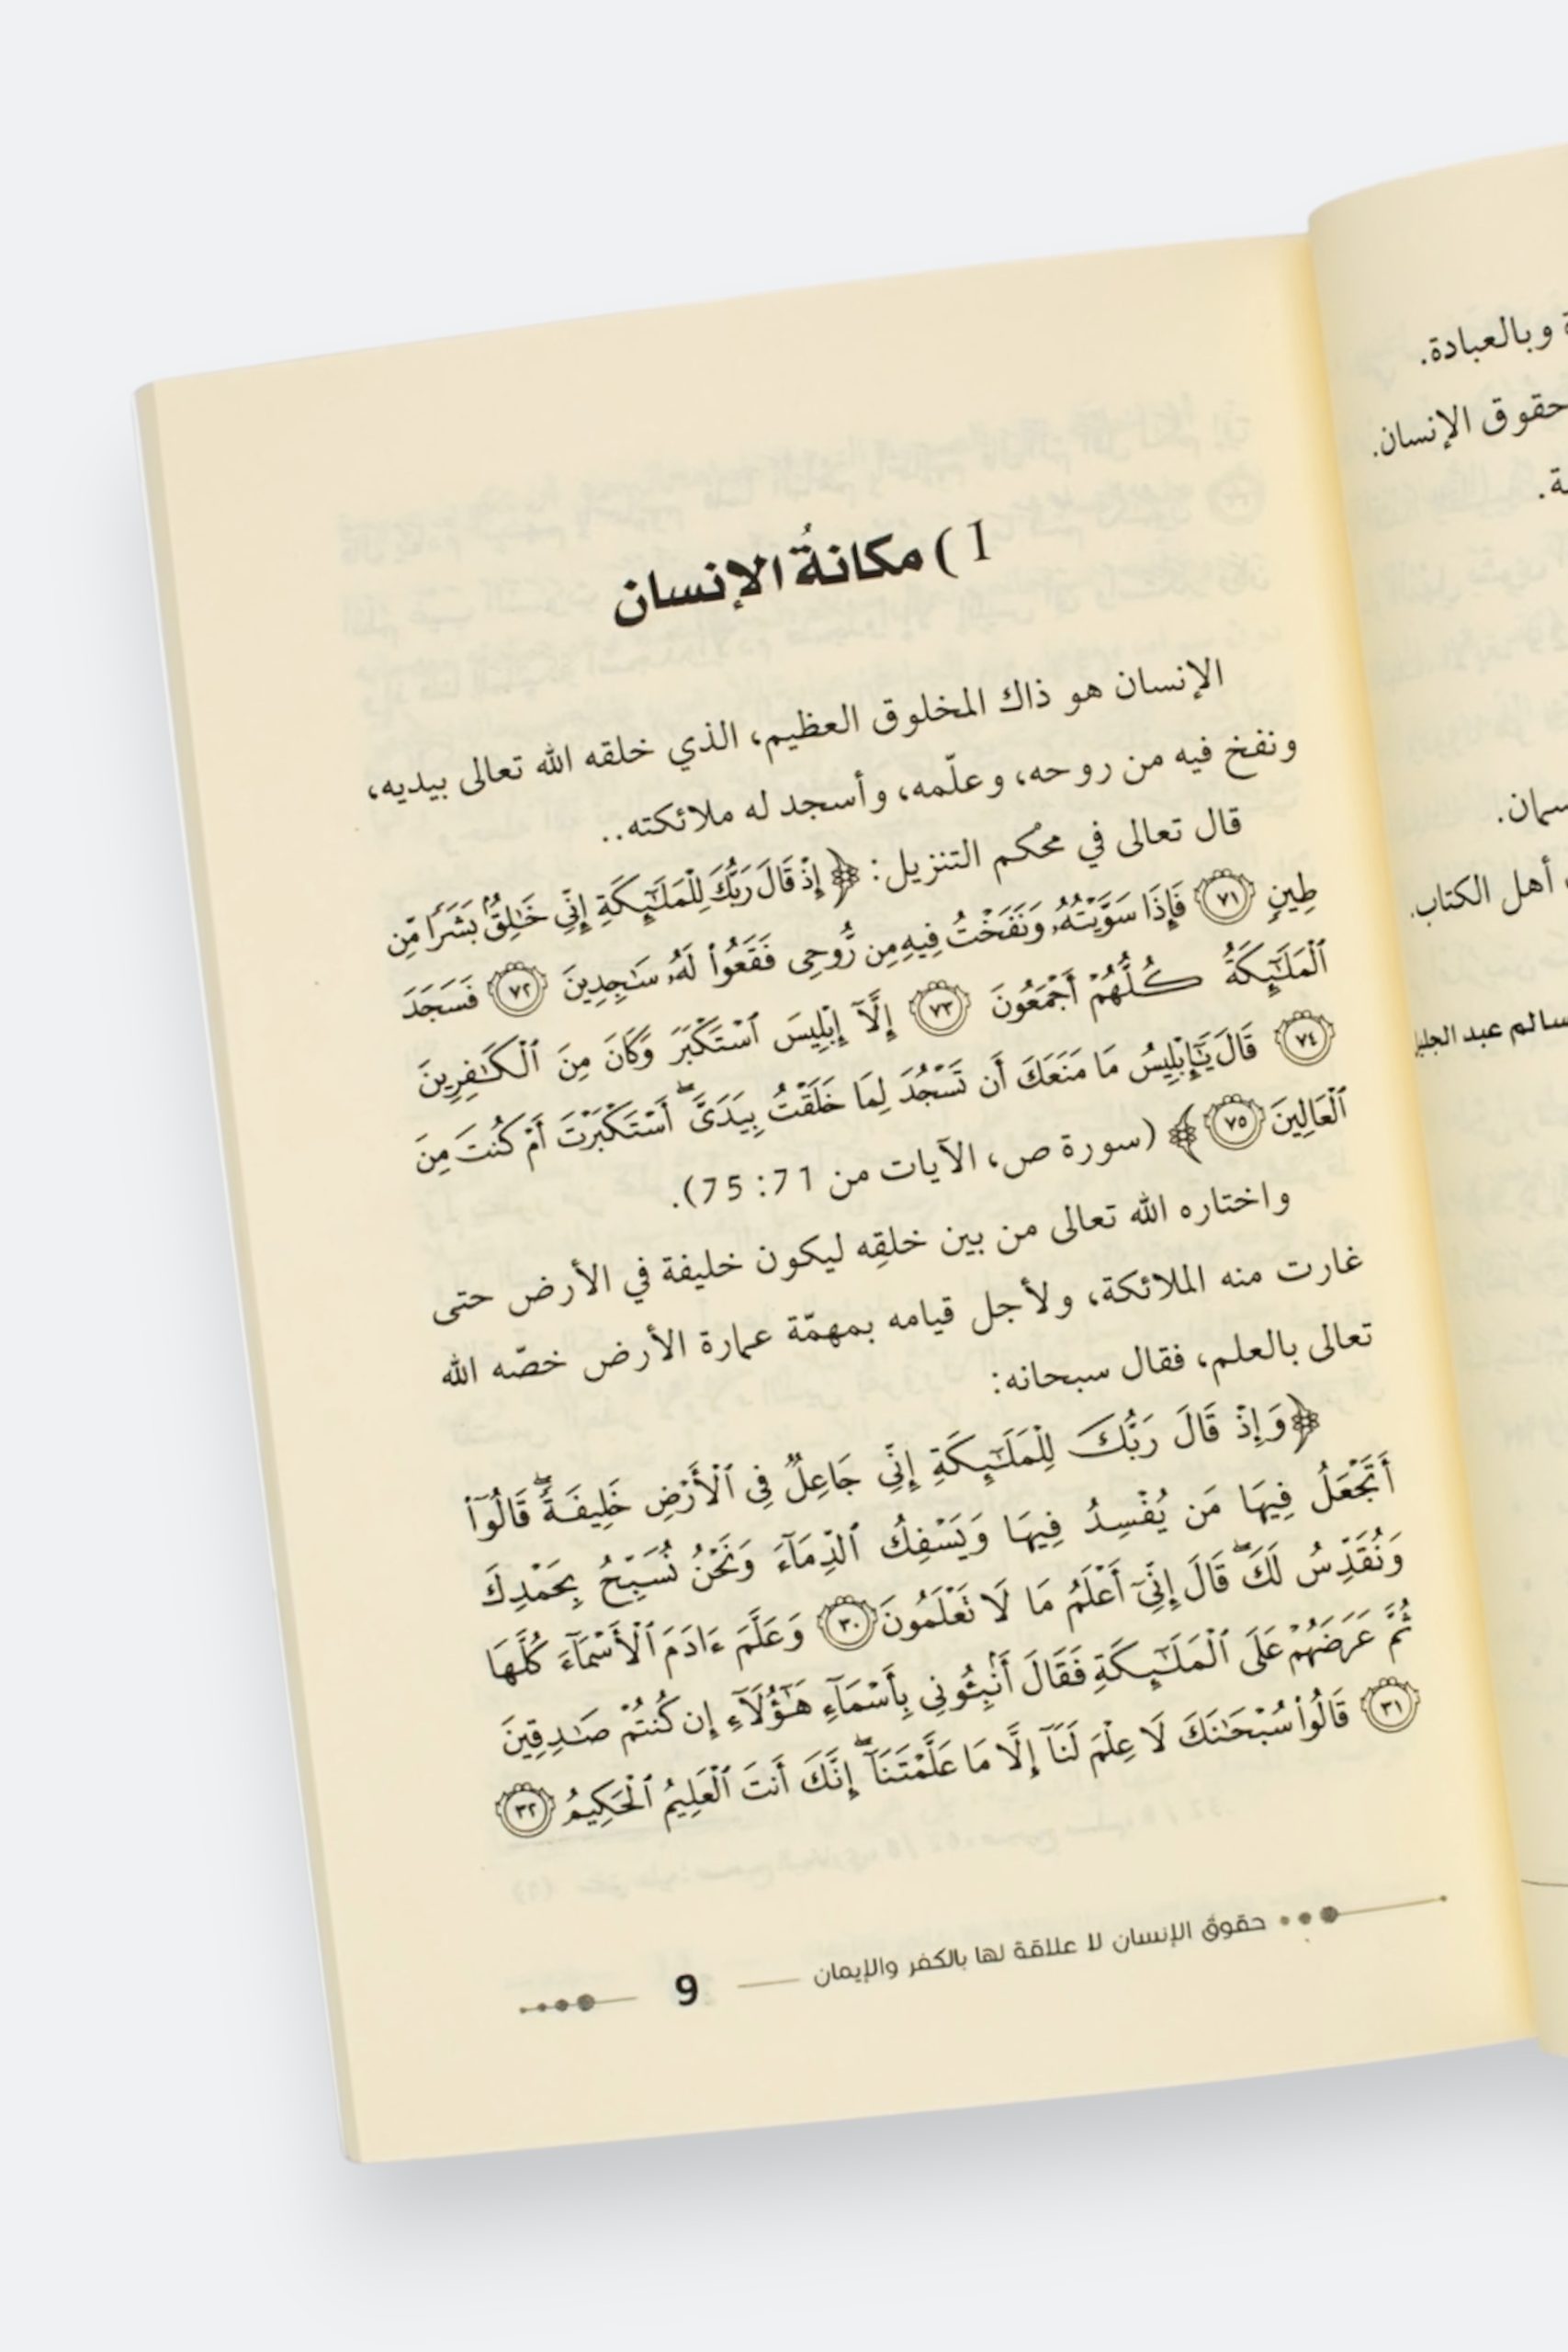 1) مكانةُ الإنسان
الإنسان هو ذاك المخلوق العظيم، الذي خلقه الله تعالى بيديه،
ونفخ فيه من روحه، وعلّمه، وأسجد له ملائكته..
قال تعالى في محُكم التنزيل: ﴿إِذۡ قَالَ رَبُّكَ لِلۡمَلَٰٓئِكَةِ إِنِّي خَٰلِقُۢ بَشَرٗا مِّن
طِينٖ ٧١ فَإِذَا سَوَّيۡتُهُۥ وَنَفَخۡتُ فِيهِ مِن رُّوحِي فَقَعُواْ لَهُۥ سَٰجِدِينَ ٧٢ فَسَجَدَ
ٱلۡمَلَٰٓئِكَةُ كُلُّهُمۡ أَجۡمَعُونَ ٧٣ إِلَّآ إِبۡلِيسَ ٱسۡتَكۡبَرَ وَكَانَ مِنَ ٱلۡكَٰفِرِينَ
٧٤ قَالَ يَٰٓإِبۡلِيسُ مَا مَنَعَكَ أَن تَسۡجُدَ لِمَا خَلَقۡتُ بِيَدَيَّۖ أَسۡتَكۡبَرۡتَ أَمۡ كُنتَ مِنَ
ٱلۡعَالِينَ ٧٥﴾ (سورة ص، الآيات من 71: 75).
واختاره الله تعالى من بين خلقِه ليكون خليفة في الأرض حتى
غارت منه الملائكة، ولأجل قيامه بمهمّة عمارة الأرض خصّه الله
تعالى بالعلم، فقال سبحانه:
﴿وَإِذۡ قَالَ رَبُّكَ لِلۡمَلَٰٓئِكَةِ إِنِّي جَاعِلٞ فِي ٱلۡأَرۡضِ خَلِيفَةٗۖ قَالُوٓاْ
أَتَجۡعَلُ فِيهَا مَن يُفۡسِدُ فِيهَا وَيَسۡفِكُ ٱلدِّمَآءَ وَنَحۡنُ نُسَبِّحُ بِحَمۡدِكَ
وَنُقَدِّسُ لَكَۖ قَالَ إِنِّيٓ أَعۡلَمُ مَا لَا تَعۡلَمُونَ ٣٠ وَعَلَّمَ ءَادَمَ ٱلۡأَسۡمَآءَ كُلَّهَا
ثُمَّ عَرَضَهُمۡ عَلَى ٱلۡمَلَٰٓئِكَةِ فَقَالَ أَنۢبِـُٔونِي بِأَسۡمَآءِ هَٰٓؤُلَآءِ إِن كُنتُمۡ صَٰدِقِينَ
٣١ قَالُواْ سُبۡحَٰنَكَ لَا عِلۡمَ لَنَآ إِلَّا مَا عَلَّمۡتَنَآۖ إِنَّكَ أَنتَ ٱلۡعَلِيمُ ٱلۡحَكِيمُ ٣٢
حقوق الإنسان لا علاقة لها بالكفر والإيمان 9
وبالعبادة.
حقوق الإنسان.
أهل الكتاب.
سالم عبد الجليل